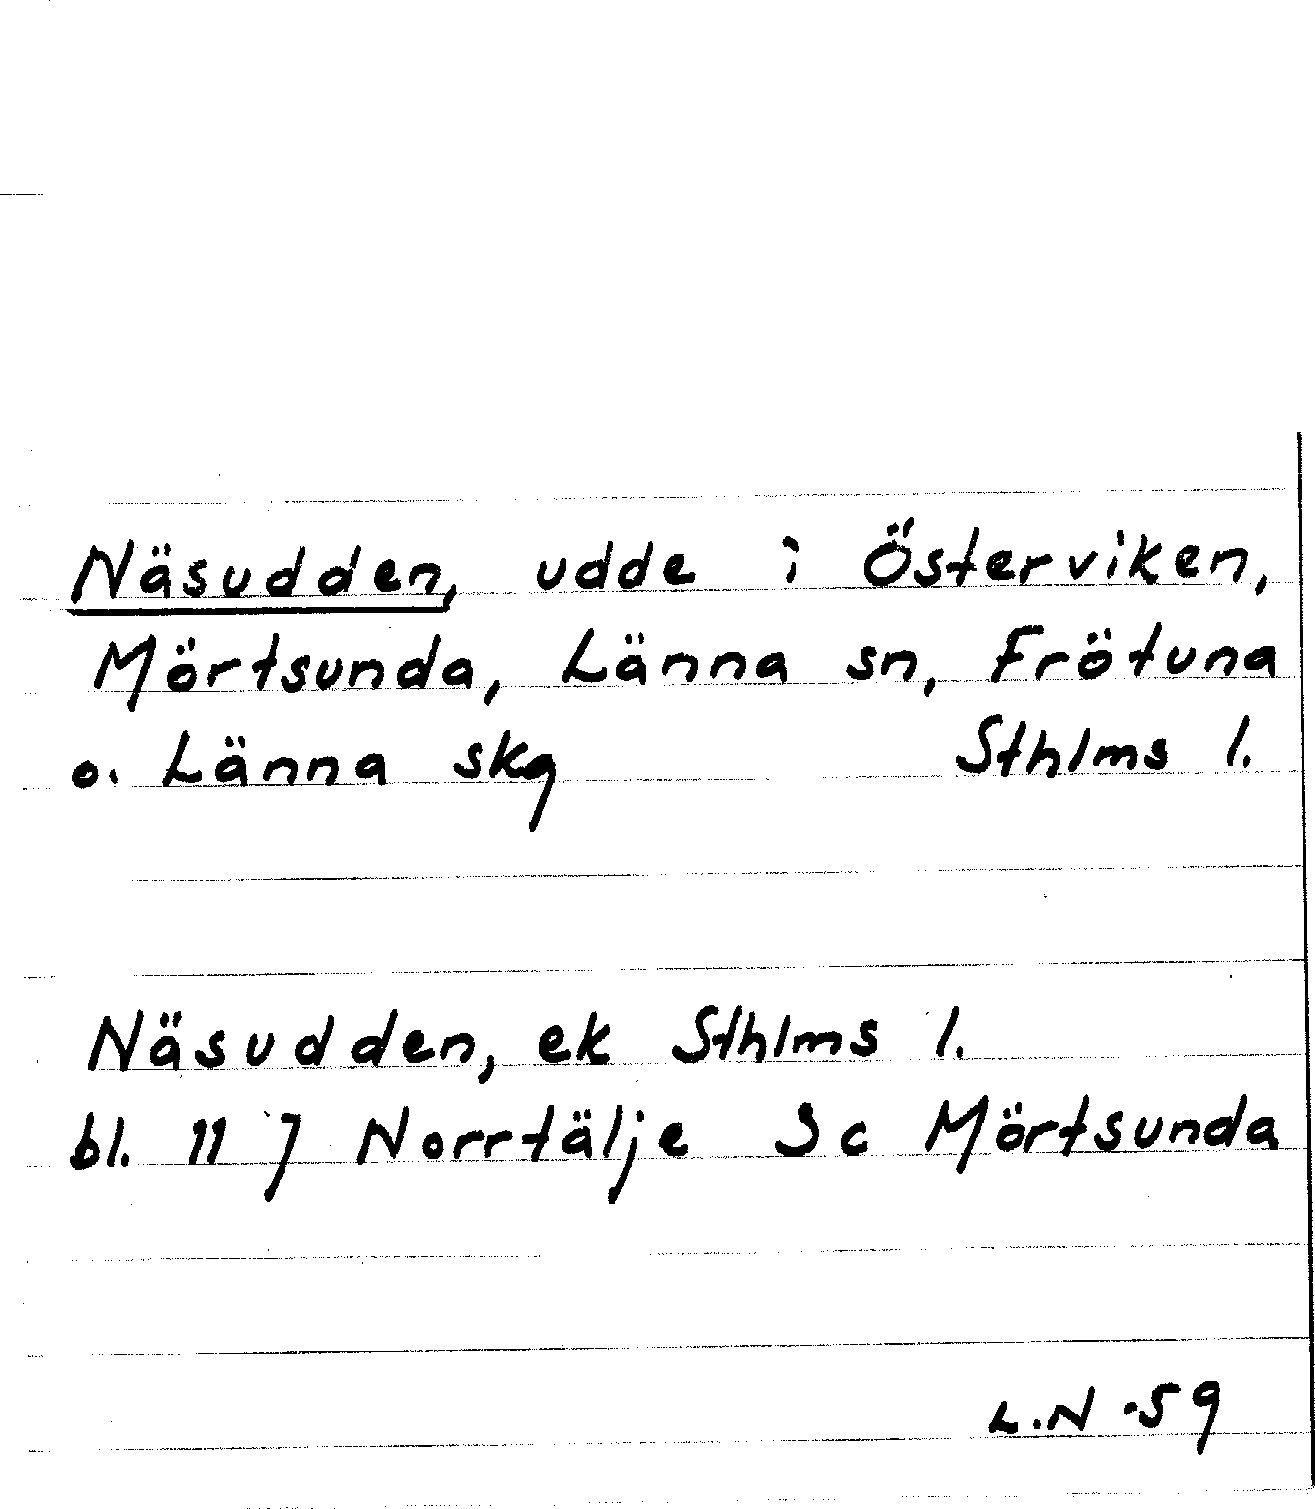 Näsudden, udde i Österviken,
Mörtsunda, Länna sn, Frötuna
o. Länna skg Sthlms l.
Näsudden, ek Sthlms l.
bl. 11 J Norrtälje 3 c Mörtsunda
L.N -59